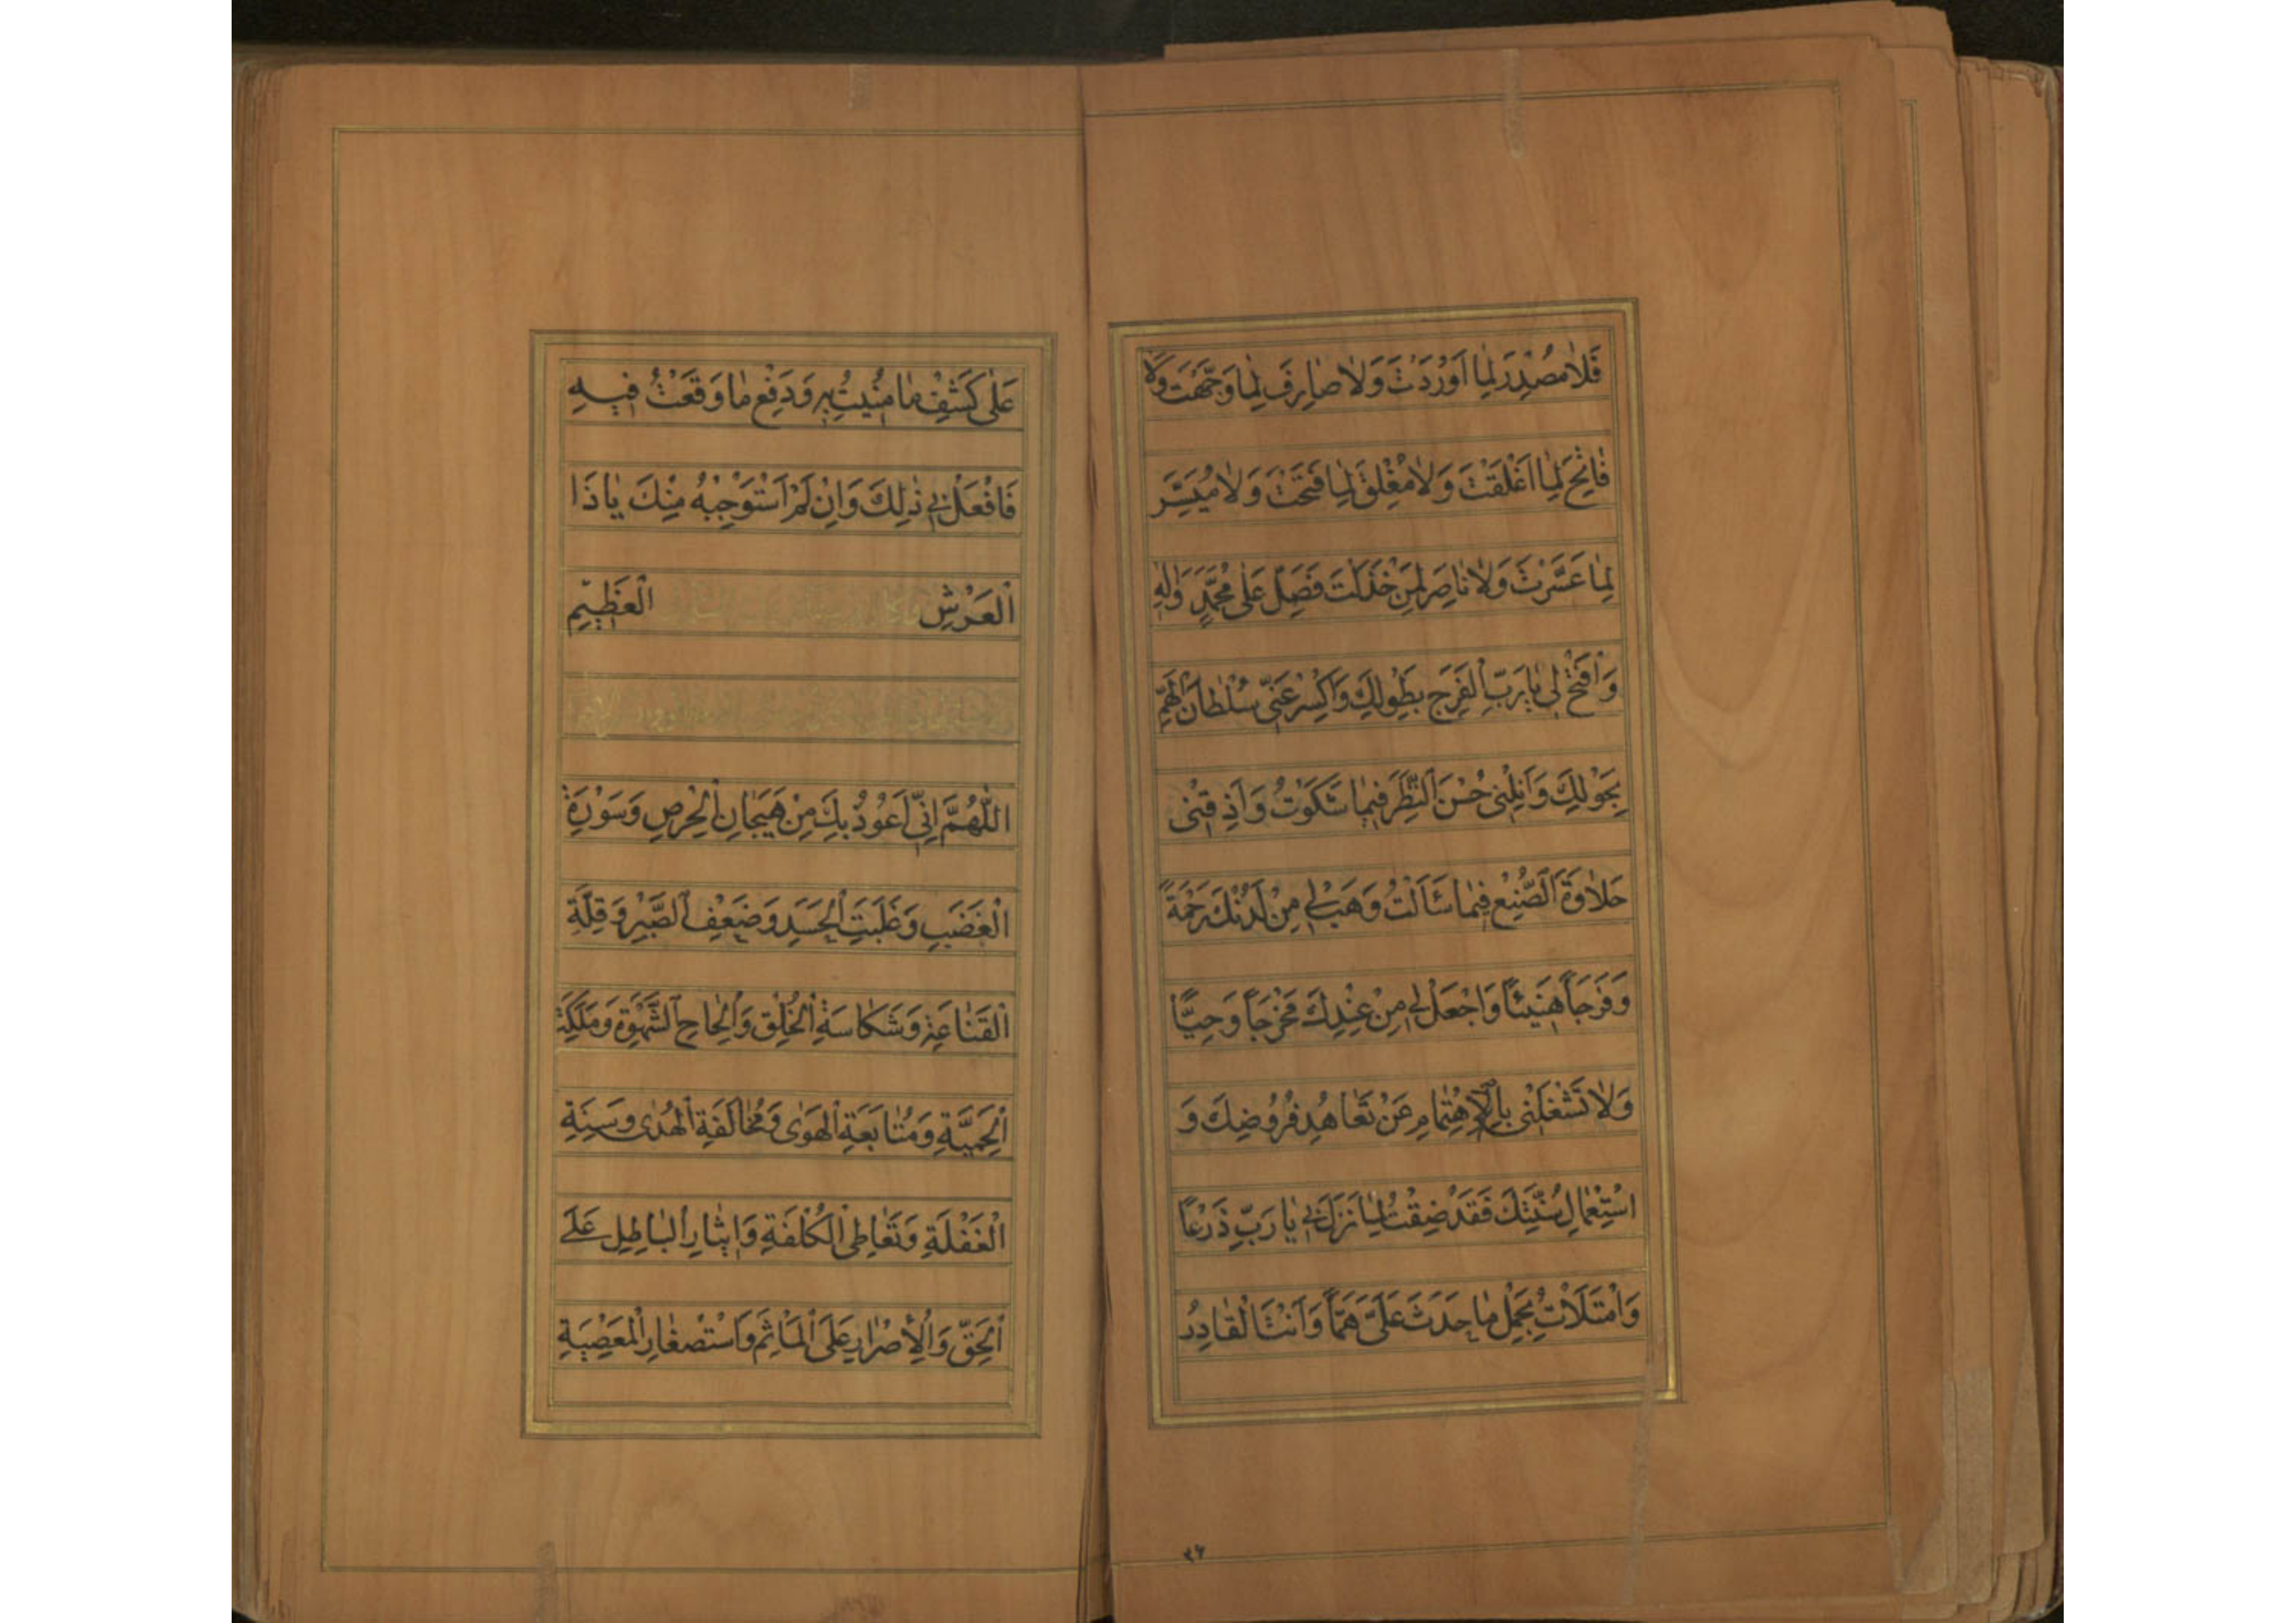 فَلَامُصْدِرَ لِمَا اَوْرَدْتَ وَلَا صَارِفَ لِمَا وَجَّهْتَ وَلَا
فَاتِحَ لِمَا اَغْلَقْتَ وَلَا مُغْلِقَ لِمَا فَتَحْتَ وَلَا مُيَسِّرَ
لِمَا عَسَّرْتَ وَلَا نَاصِرَ لِمَنْ خَذَلْتَ فَصَلِّ عَلَى مُحَمَّدٍ وَالِهِ
وَافْتَحْ لِي يَا رَبِّ الْفَرَجِ بِطَوْلِكَ وَاكْسِرْ عَنِّي سُلْطَانَ الْهَمِّ
بِحَوْلِكَ وَاَنِلْنِي حُسْنَ النَّظَرِ فِيمَا شَكَوْتُ وَاَذِقْنِي
حَلَاوَةَ الصُّنْعِ فِيمَا سَئَالْتُ وَهَبْ لِي مِنْ لَدُنْكَ رَحْمَةً
وَفَرَجَاً هَنِيئاً وَاجْعَلْ لِي مِنْ عِنْدِكَ مَخْرَجَاً وَحِيًّا
وَلَا تَشْغَلْنِي بِالْاِهْتِمَامِ عَنْ تَعَاهُدِ فُرُوضِكَ وَ
اسْتِعْمَالِ سُنَّتِكَ فَقَدْ ضِقْتُ لِمَا نَزَلَ بِي يَا رَبِّ ذَرْعاً
وَامْتَلَأْتُ بِحَمْلِ مَا حَدَثَ عَلَيَّ هَمّاً وَاَنْتَ الْقَادِرُ
٢۶
عَلَى كَشْفِ مَا مُنِيتُ بِهِ وَدَفْعِ مَا وَقَعْتُ فِيهِ
فَافْعَلْ بِي ذٰلِكَ وَاِنْ لَمْ اَسْتَوْجِبْهُ مِنْكَ يَا ذَا
الْعَرْشِ الْعَظِيمِ
اللّٰهُمَّ اِنِّي اَعُوذُ بِكَ مِنْ هَيَجَانِ الْحِرْصِ وَسَوْرَةِ
الْغَضَبِ وَغَلَبَتِ الْحَسَدِ وَضَعْفِ الصَّبْرِ وَقِلَّةِ
الْقَنَاعَةِ وَشَكَاسَةِ الْخُلْقِ وَاِلْحَاحِ الشَّهْوَةِ وَمَلَكَةِ
الْحَمِيَّةِ وَمُتَابَعَةِ الْهَوَى وَمُخَالَفَةِ الْهُدَى وَسِنَةِ
الْغَفْلَةِ وَتَعَاطِي الْكُلْفَةِ وَاِيثَارِ الْبَاطِلِ عَلَى
الْحَقِّ وَالْاِصْرَارِ عَلَى الْمَاْثَمِ وَاسْتِصْغَارِ الْمَعْصِيَةِ